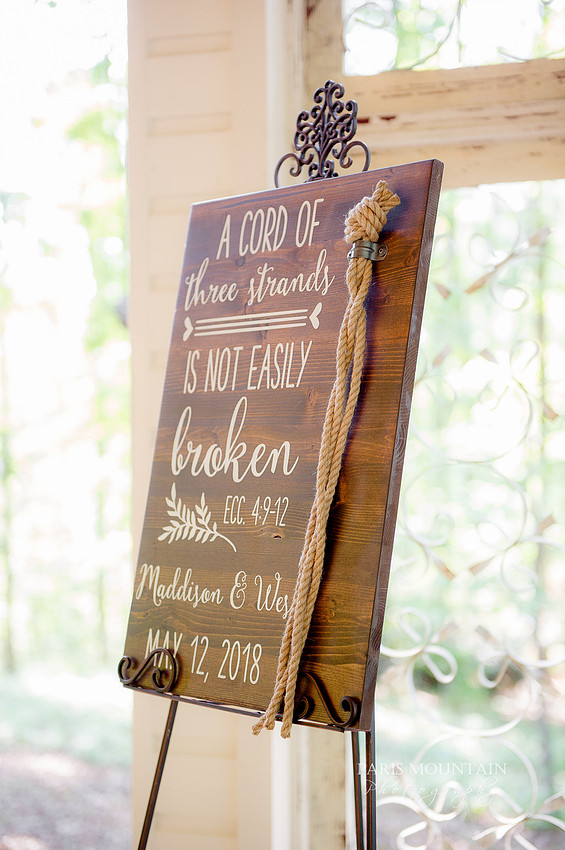 A CORD OF
three strands
IS NOT EASILY
broken
ECC. 4:9-12
Maddison & Wes
MAY 12, 2018
PARIS MOUNTAIN
Photography